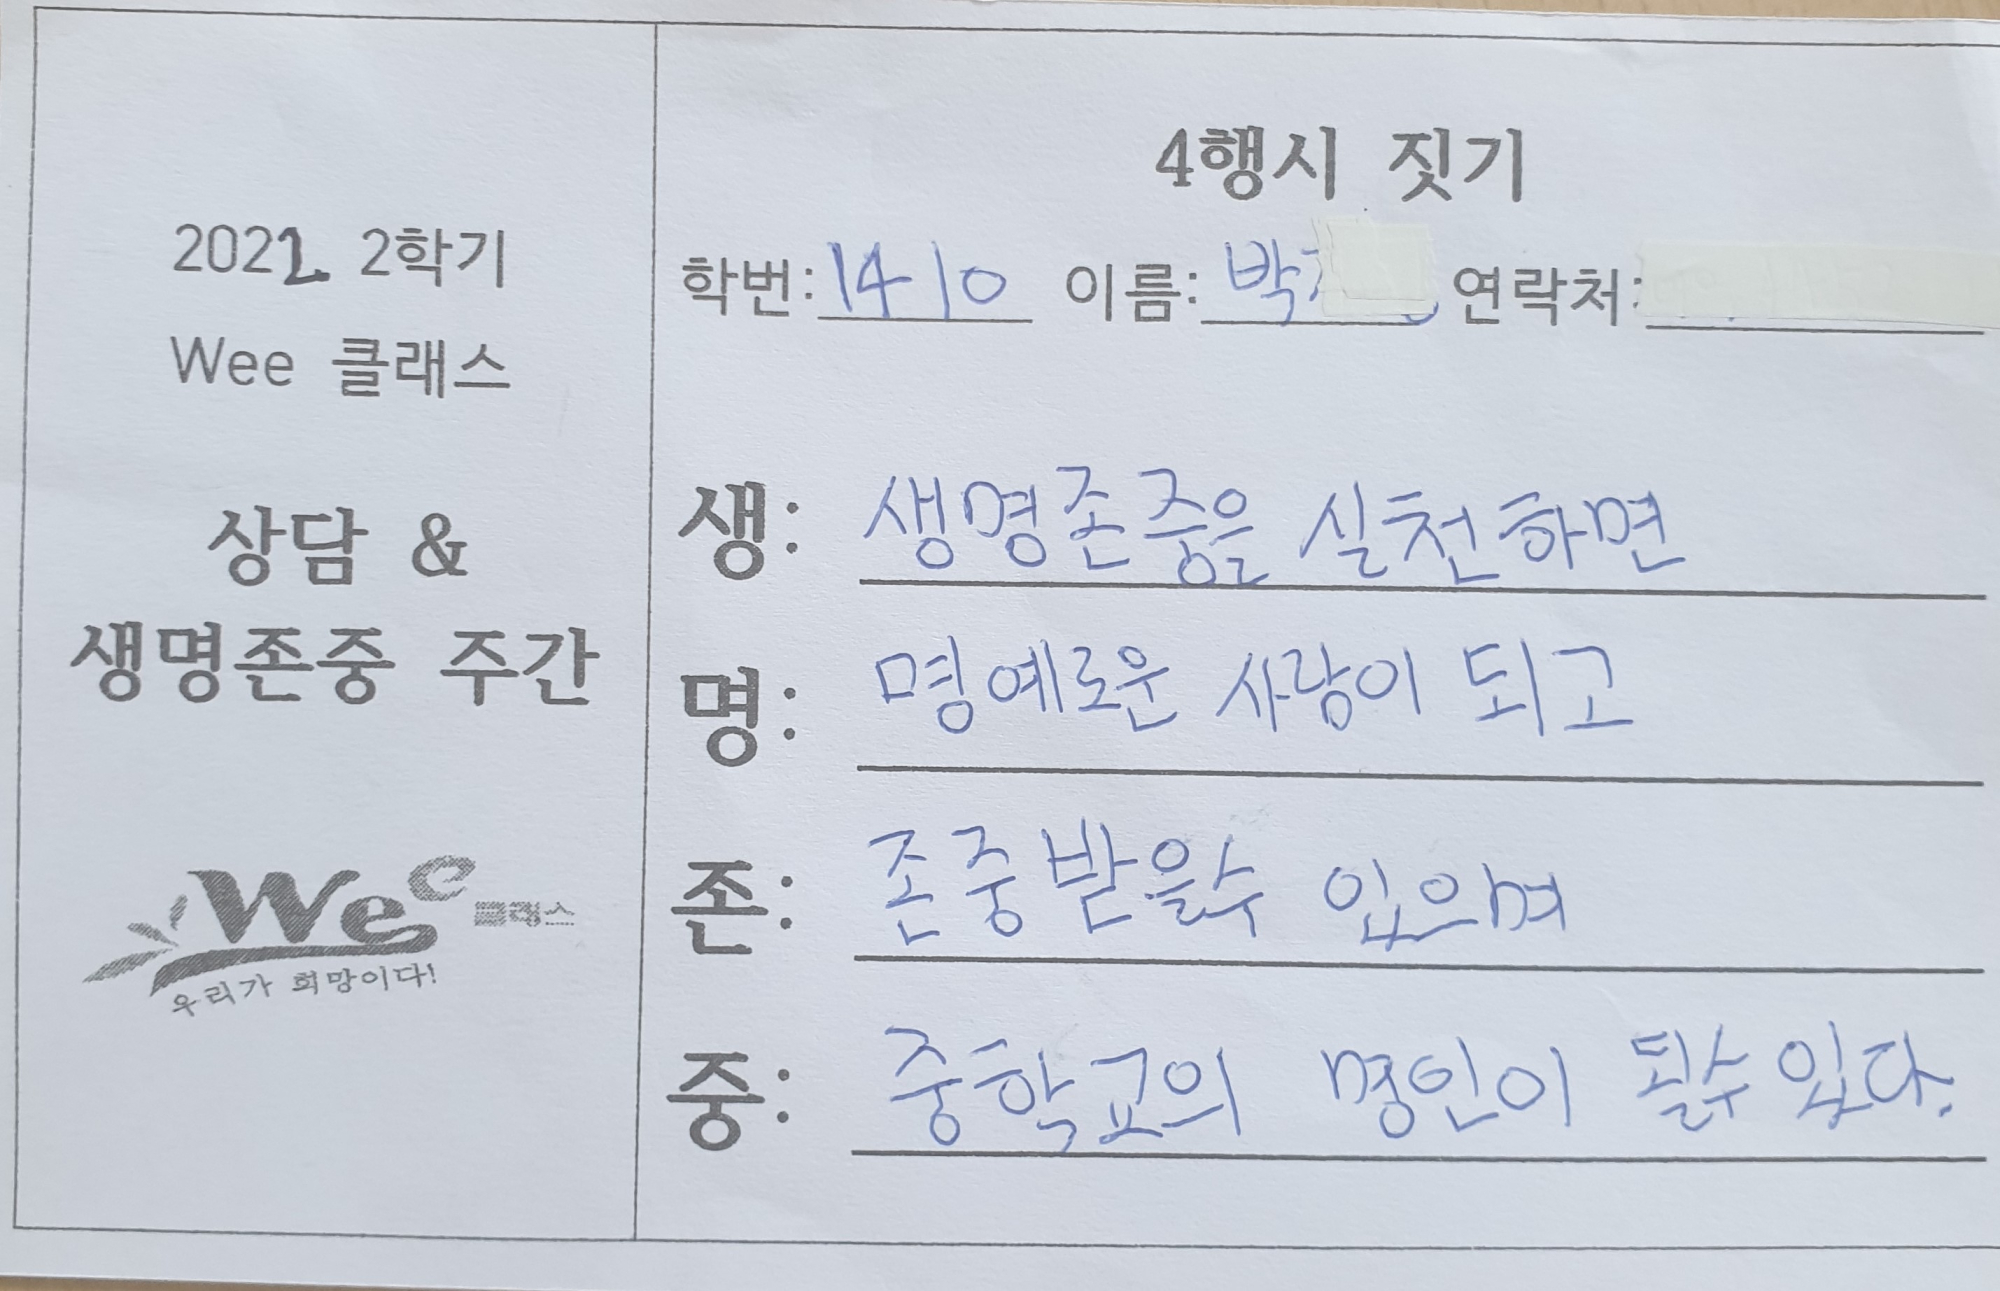 2022 2학기
Wee 클래스
상담 &
생명존중 주간
Wee 클래스
우리가 희망이다!
4행시 짓기
학번: 1410 이름: 박 연락처:
생: 생명존중을 실천하면
명: 명예로운 사랑이 되고
존: 존중받을수 있으며
중: 중학교의 명인이 될수있다.